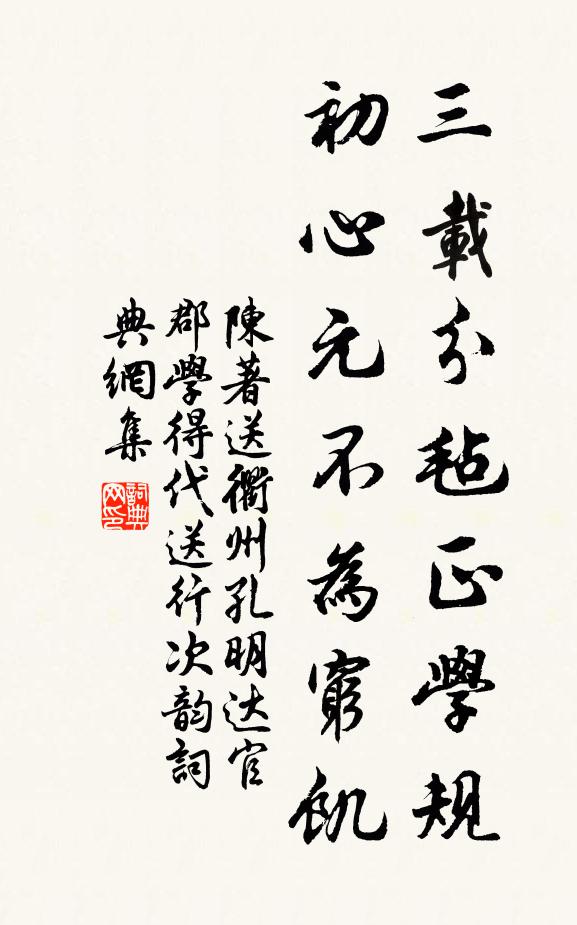 三載分毡正學規
初心元不為窮飢
陳著送衢州孔明达官
郡學得代送行次韵詞
典網集
詞典
网印